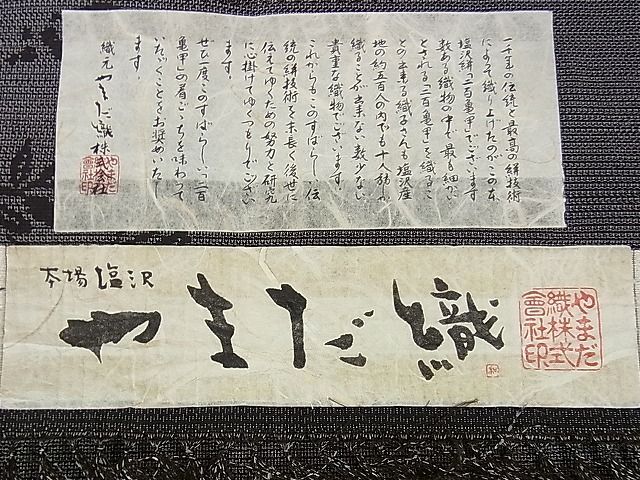 一千年の伝統と最高の絣技術
によって織り上げたのがこの本
塩沢絣「二百亀甲」でございます。
数ある織物の中で最も細かい
とされる「二百亀甲」を織るこ
との出来る織子さんも塩沢産
地の約五百人の内でも十人弱しか
織ることが出来ない数少ない
貴重な織物でございます。
これからもこのすばらしい伝
統の絣技術を末長く後世に
伝えてゆくための努力と研究
に心掛けてゆくつもりでござい
ます。
ぜひ一度このすばらしい「二百
亀甲」の着ごこちを味わって
いただくことをお奨めいたし
ます
織元 やまだ織株式会社
やまだ織株式會社印
本場塩沢
やまだ織
やまだ
織株式
會社印